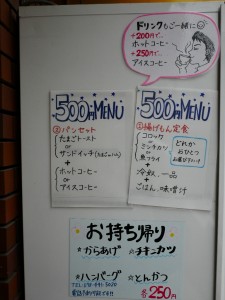 ドリンクもご一緒に
+200円で…
ホットコーヒー
+250円で…
アイスコーヒー
500円MENU
②パンセット
たまごトースト
or
サンドイッチ
+
ホットコーヒー
or
アイスコーヒー
500円MENU
揚げもん定食
コロッケ
or
ミンチカツ
or
魚フライ
どれか
おひとつ
お選び下さい!
+
冷奴、一品
+
ごはん、味噌汁
お持ち帰り
☆からあげ ☆チキンカツ
☆ハンバーグ ☆とんかつ
各250円